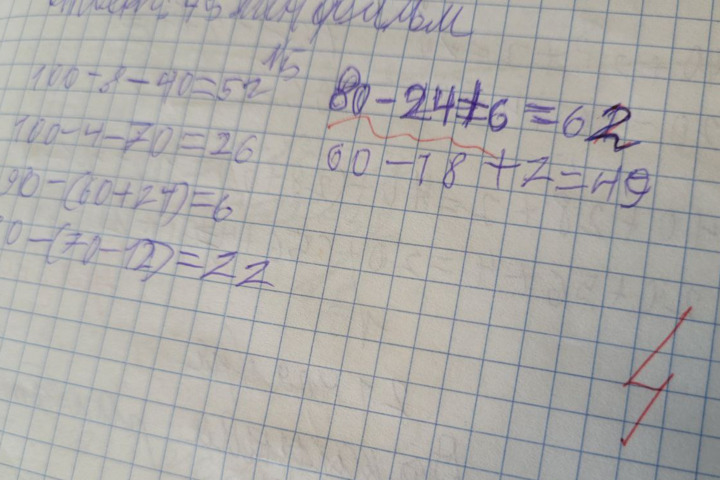 фильм
№5
100-8-40=52
100-4-70=26
90-(60+24)=6
0-(70-12)=22
80-24+6=62
60-18+7=49
4